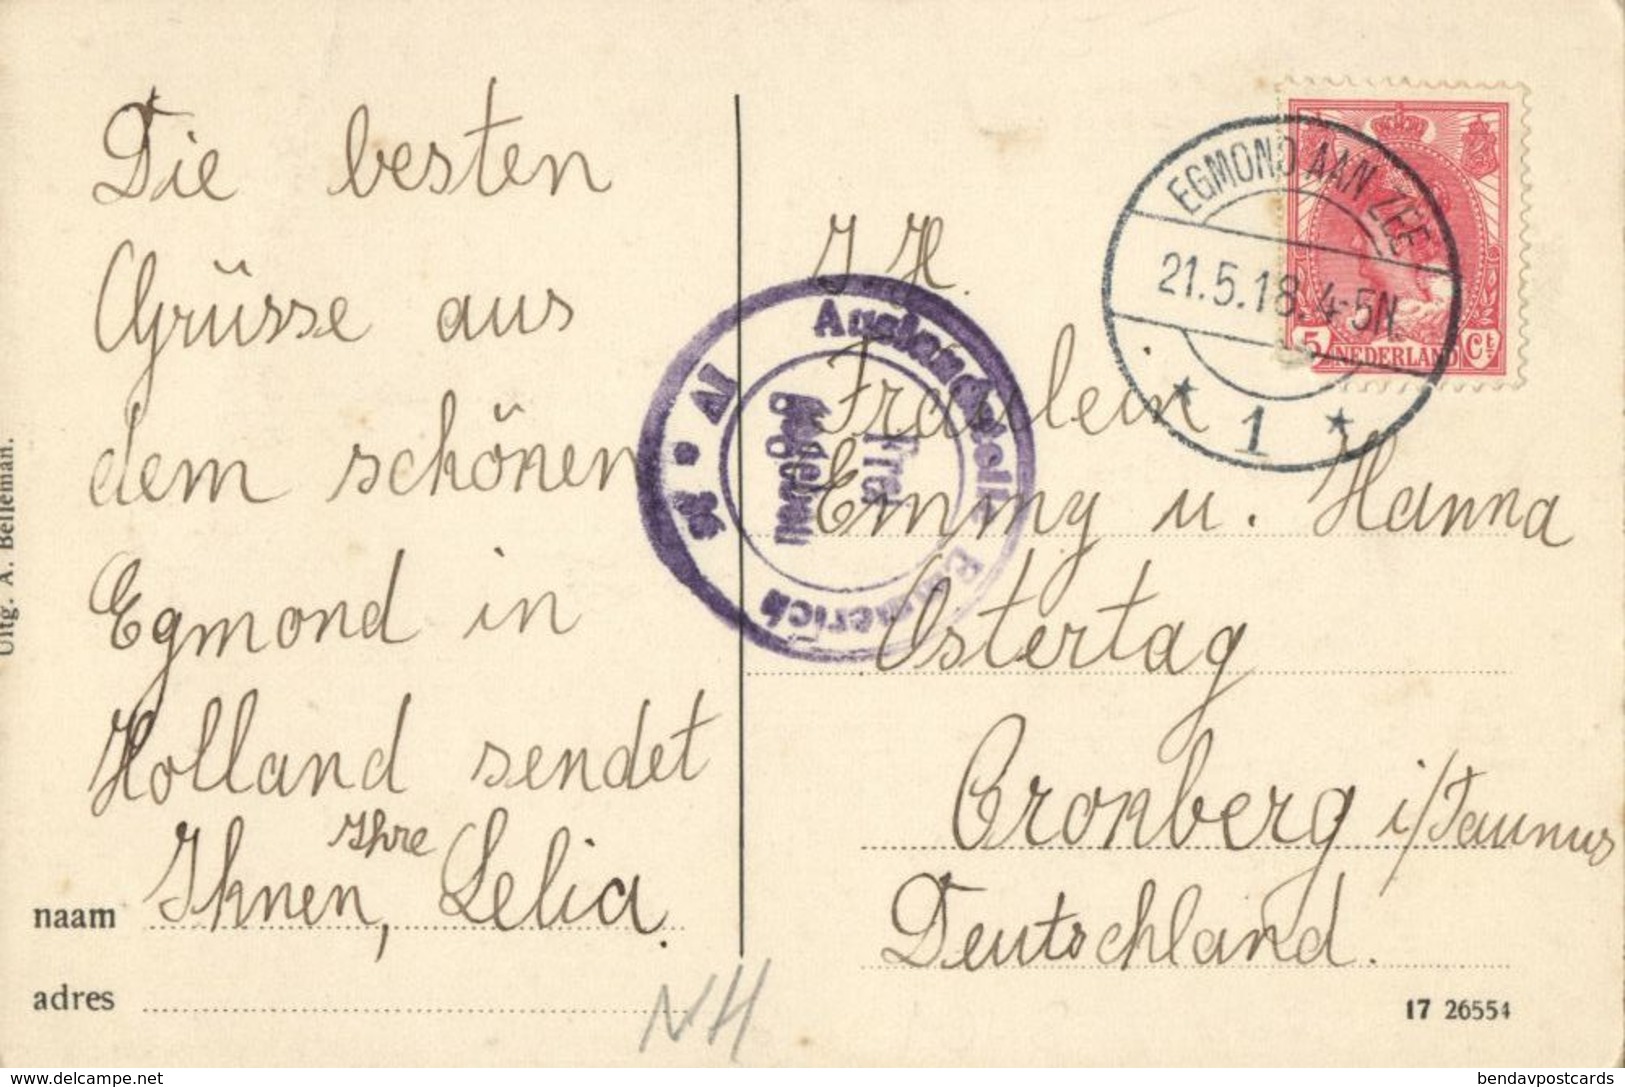 Die besten
Grüsse aus
dem schönen
Egmond in
Holland sendet
Ihre
Ihnen, Lelia.
naam
adres
NH
Uitg. A. Belleman.
J. H.
Fräulein
Emmy u. Hanna
Ostertag
Cronberg i/Taunus
Deutschland.
17 26554
EGMOND AAN ZEE
21.5.18. 4-5N.
1
5 NEDERLAND Ct
Auslandstelle Emmerich
Frei
gegeben
bendavpostcards